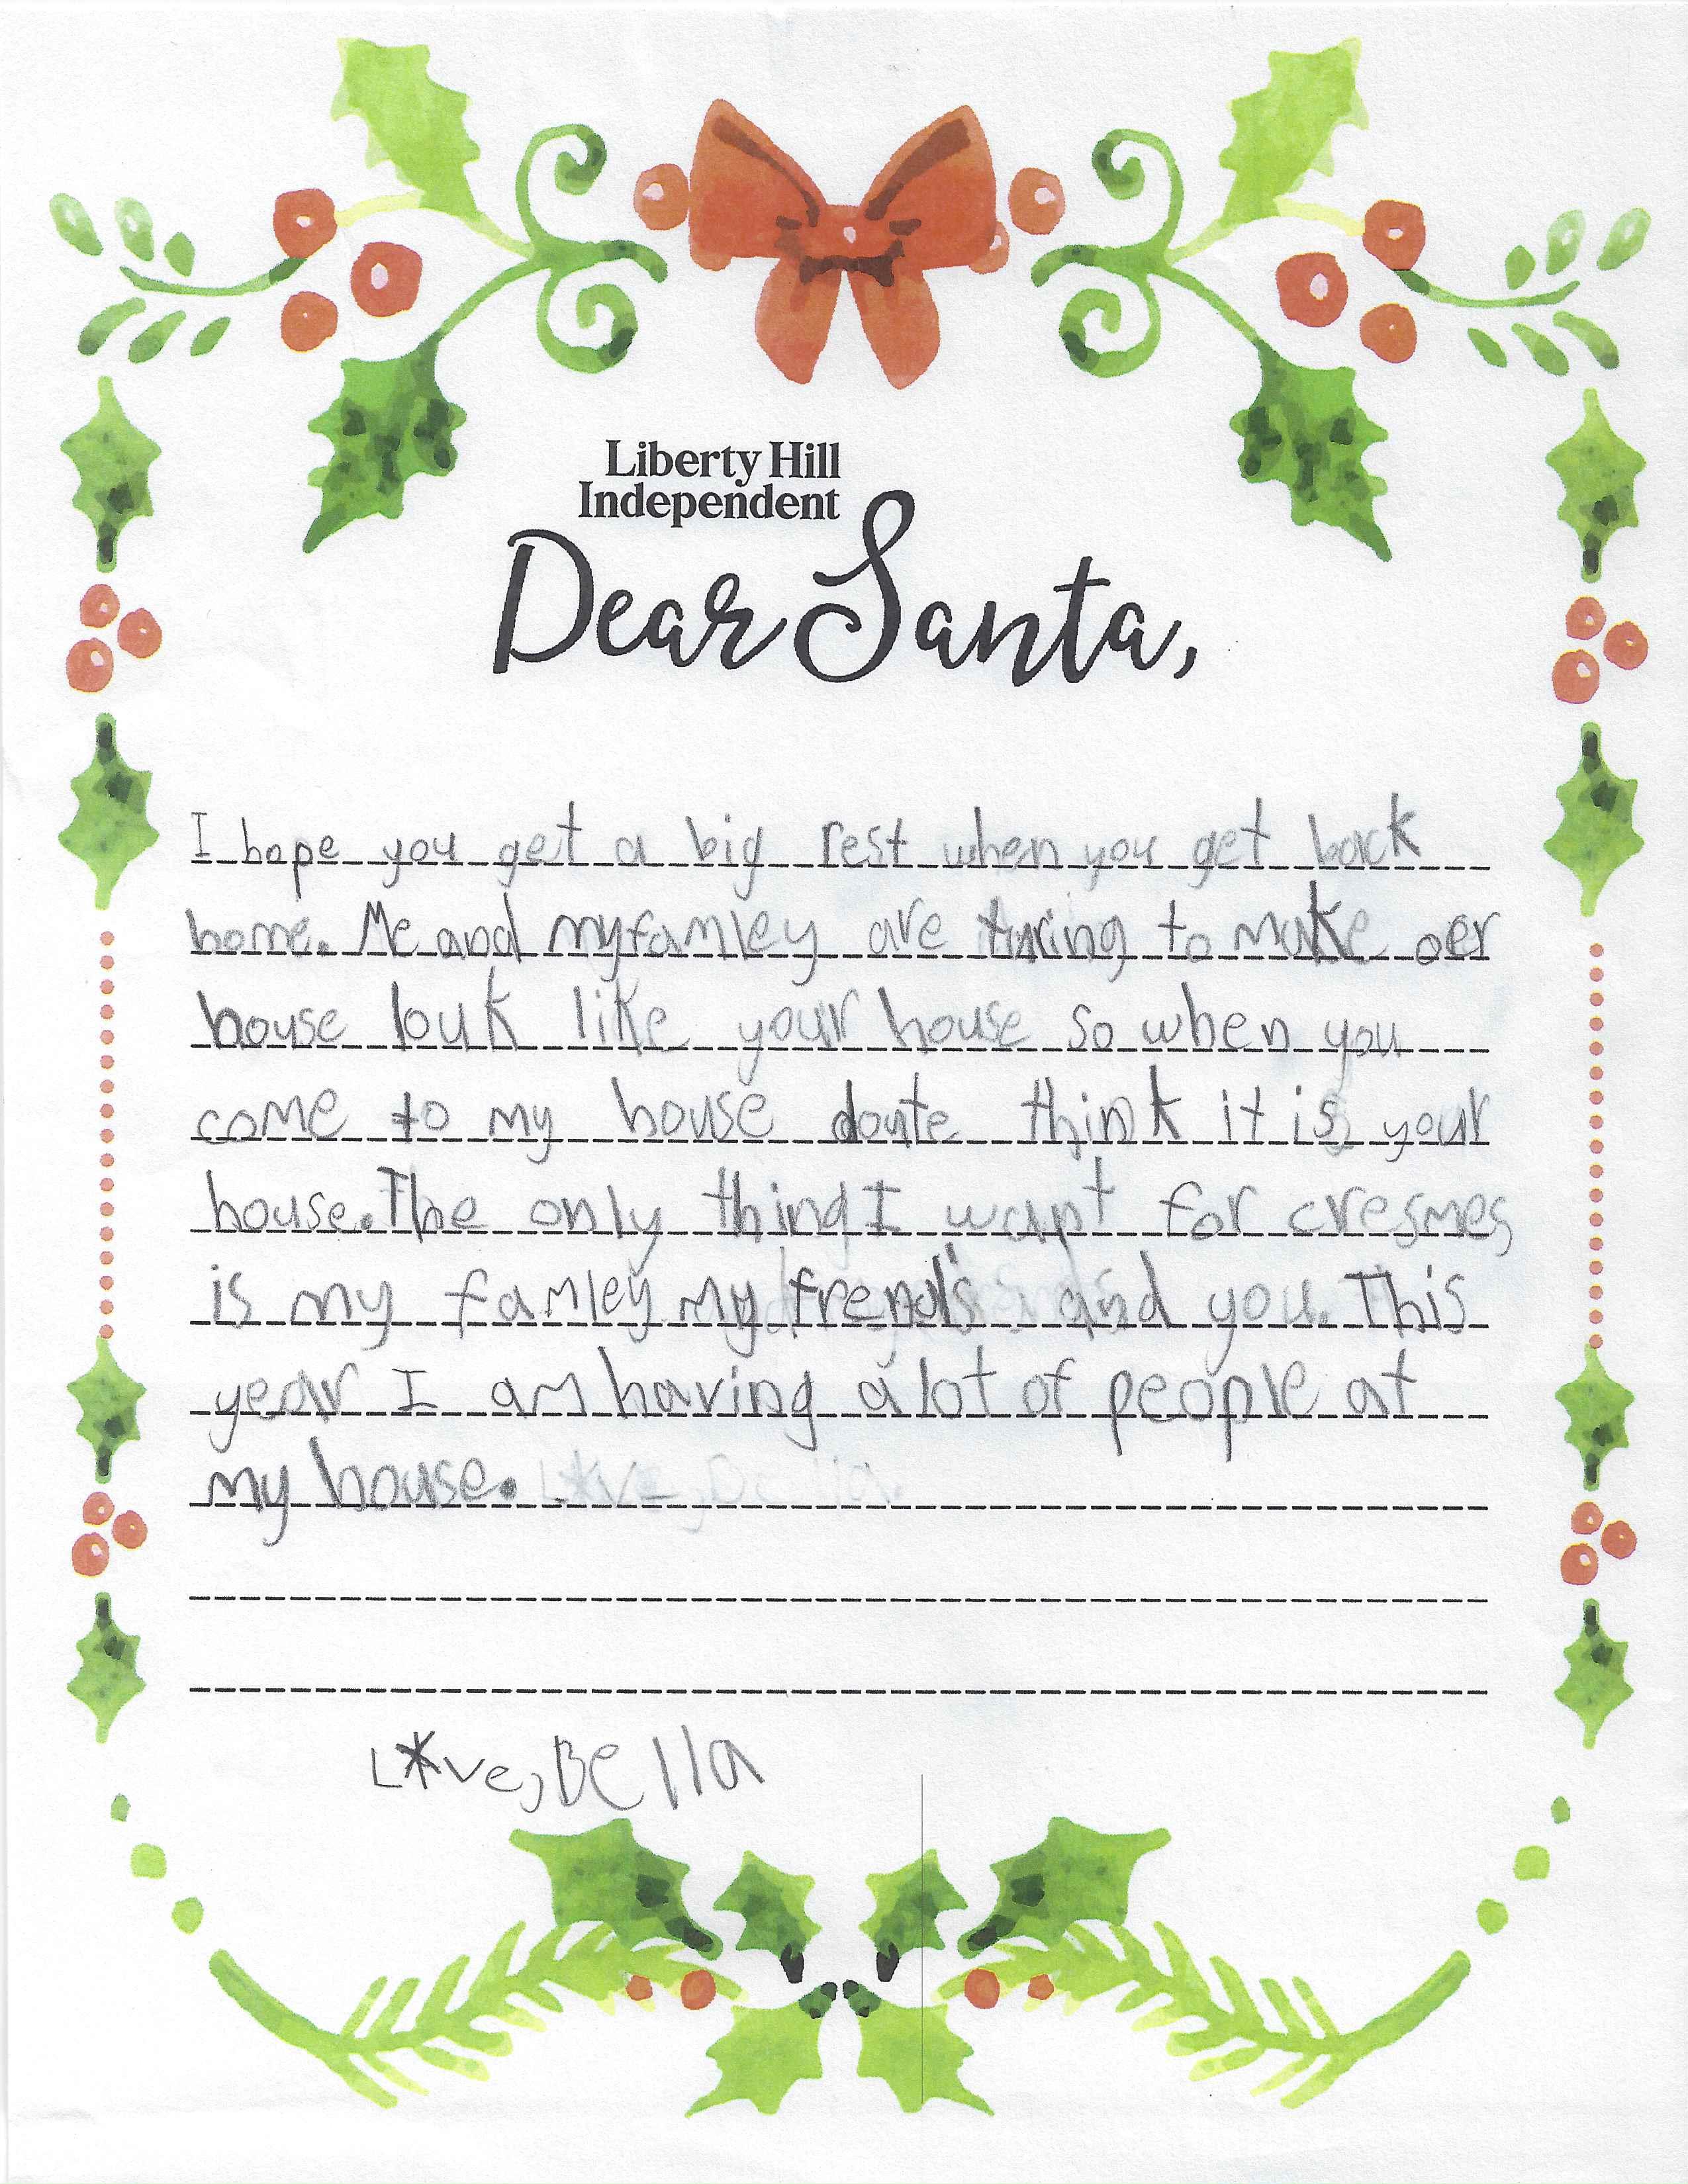 Liberty Hill
Independent
Dear Santa,
I hope you get a big rest when you get back
home. Me and my famley are turing to make oer
house louk like your house so when you
come to my house donte think it is your
house. The only thing I want for cresmes
is my famley my frend's and you. This
year I am having a lot of people at
my house. L*ve, Bella.
L*ve, Bella